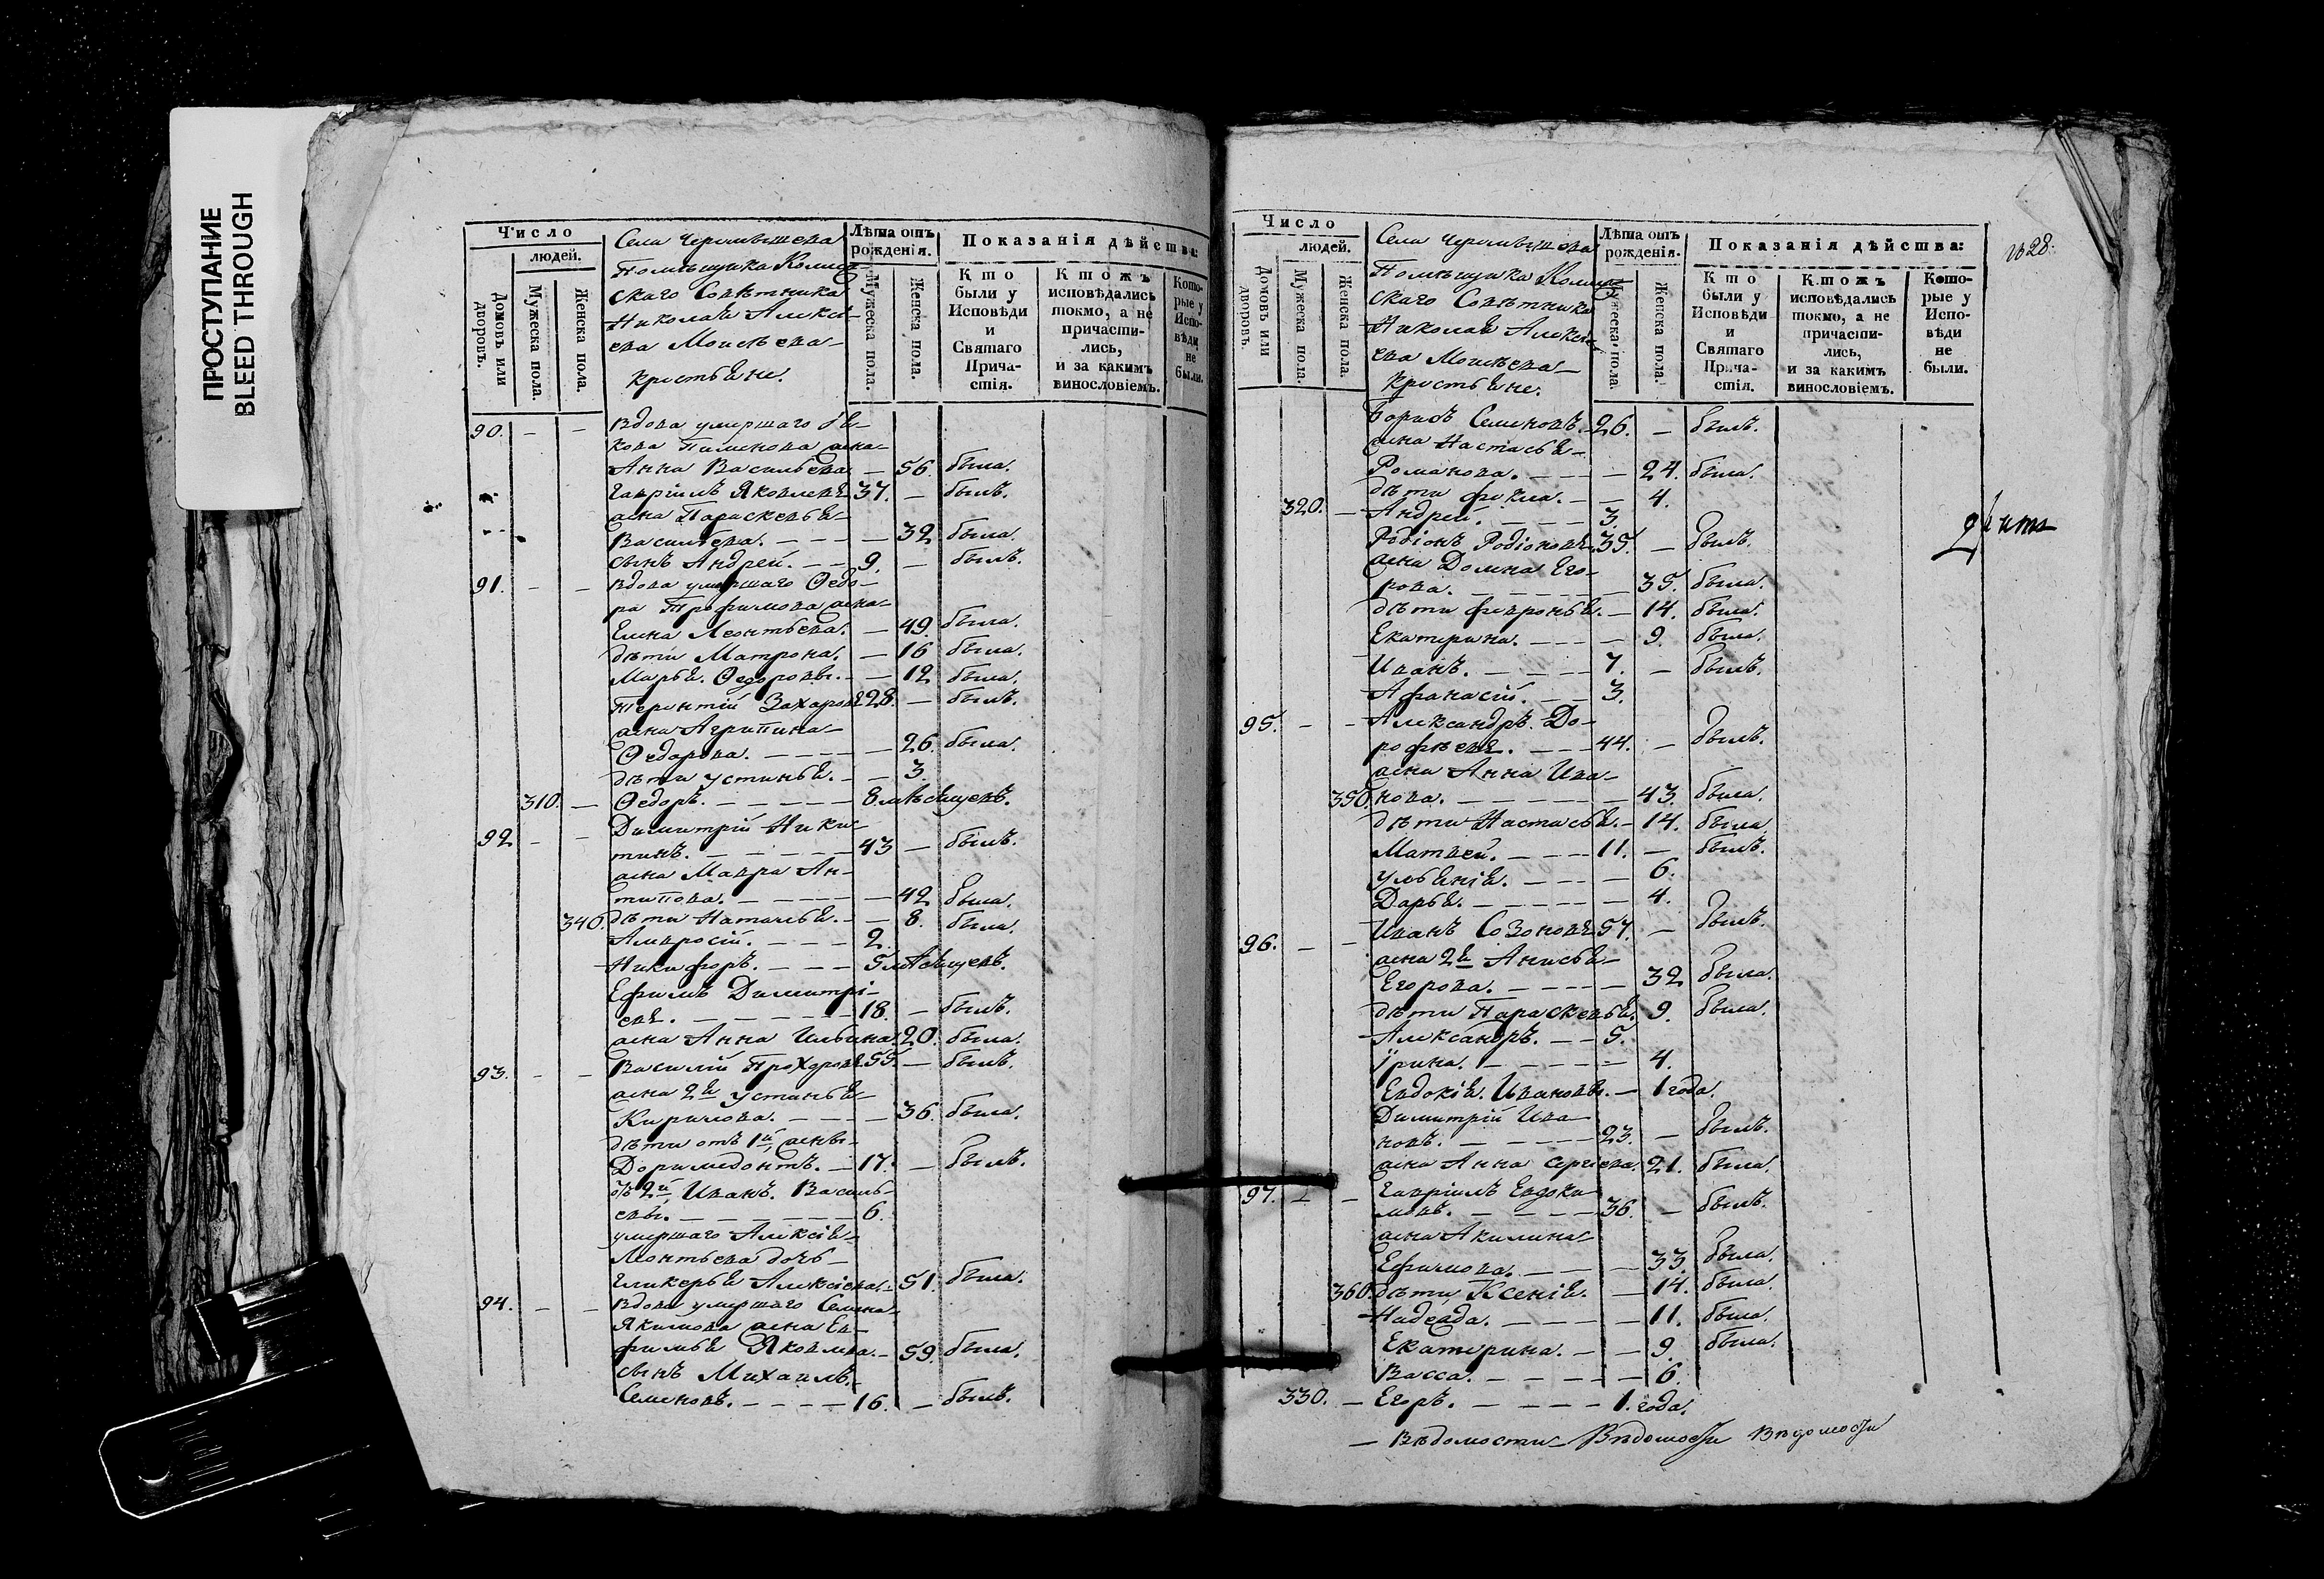 ПРОСТУПАНИЕ
BLEED THROUGH
Число
людей.
Домовъ или дворовъ.
Мужеска пола.
Женска пола.
Села Чернышева
Помѣщика Коллеж-
скаго Совѣтника
Николая Алексѣ-
ева Моисѣева
крестьяне.
Лѣта отъ рожденія.
Мужеска пола.
Женска пола.
Показанія дѣйства:
Кто были у Исповѣди и Святаго Причастія.
Кто жъ исповѣдались токмо, а не причастились, и за какимъ винословіемъ.
Которые у Исповѣди не были.
90. — — Вдова умершаго Яков-
кова Пименова жена
Анна Васильева — 56. была.
Гавріилъ Яковлевъ 37. — былъ.
жена Параскевья
Васильева. — 32 была.
сынъ Андрей. — 9. — былъ.
91. — — Вдова умершаго Ѳедо-
ра Трофимова жена
Елена Леонтьева. — 49. была.
дѣти Матрона. — 16 была.
Марья. Ѳедоровы. — 12 была.
Терентій Захаровъ 28. — былъ.
жена Агрипина
Ѳедорова. — 26. была.
дѣти Устинья. — 3.
310. — Ѳедоръ. — 8 мѣсяцевъ.
92 — — Димитрій Ники-
тинъ. — 43 — былъ.
жена Мавра Ан-
типова. — 42 была.
340. дѣти Наталья. — 8. была.
Амвросій. — 2.
Никифоръ. — 5 мѣсяцевъ.
Ефимъ Димитрі-
евъ. — 18. — былъ.
жена Анна Ильина. 20. была.
93. — — Василій Прохоровъ 55. — былъ.
жена 2я Устинья
Кирилова. — 36. была.
дѣти отъ 1й жены
Доримедонтъ. — 17. — былъ.
отъ 2й Иванъ. Василь-
евы. — 6.
умершаго Алексія
Леонтьева дочь
Гликерья Алексіева. — 51. была.
94. — — Вдова умершаго Семена
Якимова жена Ев-
фимья Яковлева. — 59. была.
сынъ Михаилъ
Семеновъ. — 16. — былъ.
Число
людей.
Домовъ или дворовъ.
Мужеска пола.
Женска пола.
Села Чернышева
Помѣщика Коллеж-
скаго Совѣтника
Николая Алексѣ-
ева Моисѣева
крестьяне.
Лѣта отъ рожденія.
Мужеска пола.
Женска пола.
Показанія дѣйства:
Кто были у Исповѣди и Святаго Причастія.
Кто жъ исповѣдались токмо, а не причастились, и за какимъ винословіемъ.
Которые у Исповѣди не были.
28.
Борисъ Семеновъ. 26. — былъ.
жена Настасья
Романова. — 24. была.
дѣти Фекла. — 4.
320. — Андрей. — 3.
Родіонъ Родіоновъ 35. — былъ.
жена Домна Его-
рова. — 35. была.
дѣти Февронья. — 14. была.
Екатерина. — 9. была.
Иванъ. — 7. — былъ.
Афанасій. — 3.
95. — — Александръ До-
рофѣевъ. — 44. — былъ.
жена Анна Ива-
350. нова. — 43. была.
дѣти Настасья. — 14. была.
Матвей. — 11. — былъ.
Ульянія. — 6.
Дарья. — 4.
96. — — Иванъ Созоновъ 57. — былъ.
жена 2я Анисья
Егорова. — 32 была.
дѣти Параскевья. 9. была.
Александръ. — 5.
Ирина. — 4.
Евдокія. Ивановы. — 1 года.
Димитрій Ива-
новъ. — 23. — былъ.
жена Анна Сергѣева. 21. была.
97. — — Гавріилъ Евдоки-
мовъ. — 36. — былъ.
жена Акилина
Ефимова. — 33. была.
360. дѣти Ксенія. — 14. была.
Надежда. — 11. была.
Екатерина. — 9. была.
Васса. — 6.
330. — Егоръ. — 1. года.
— Вѣдомости Вѣдомости Вѣдомости